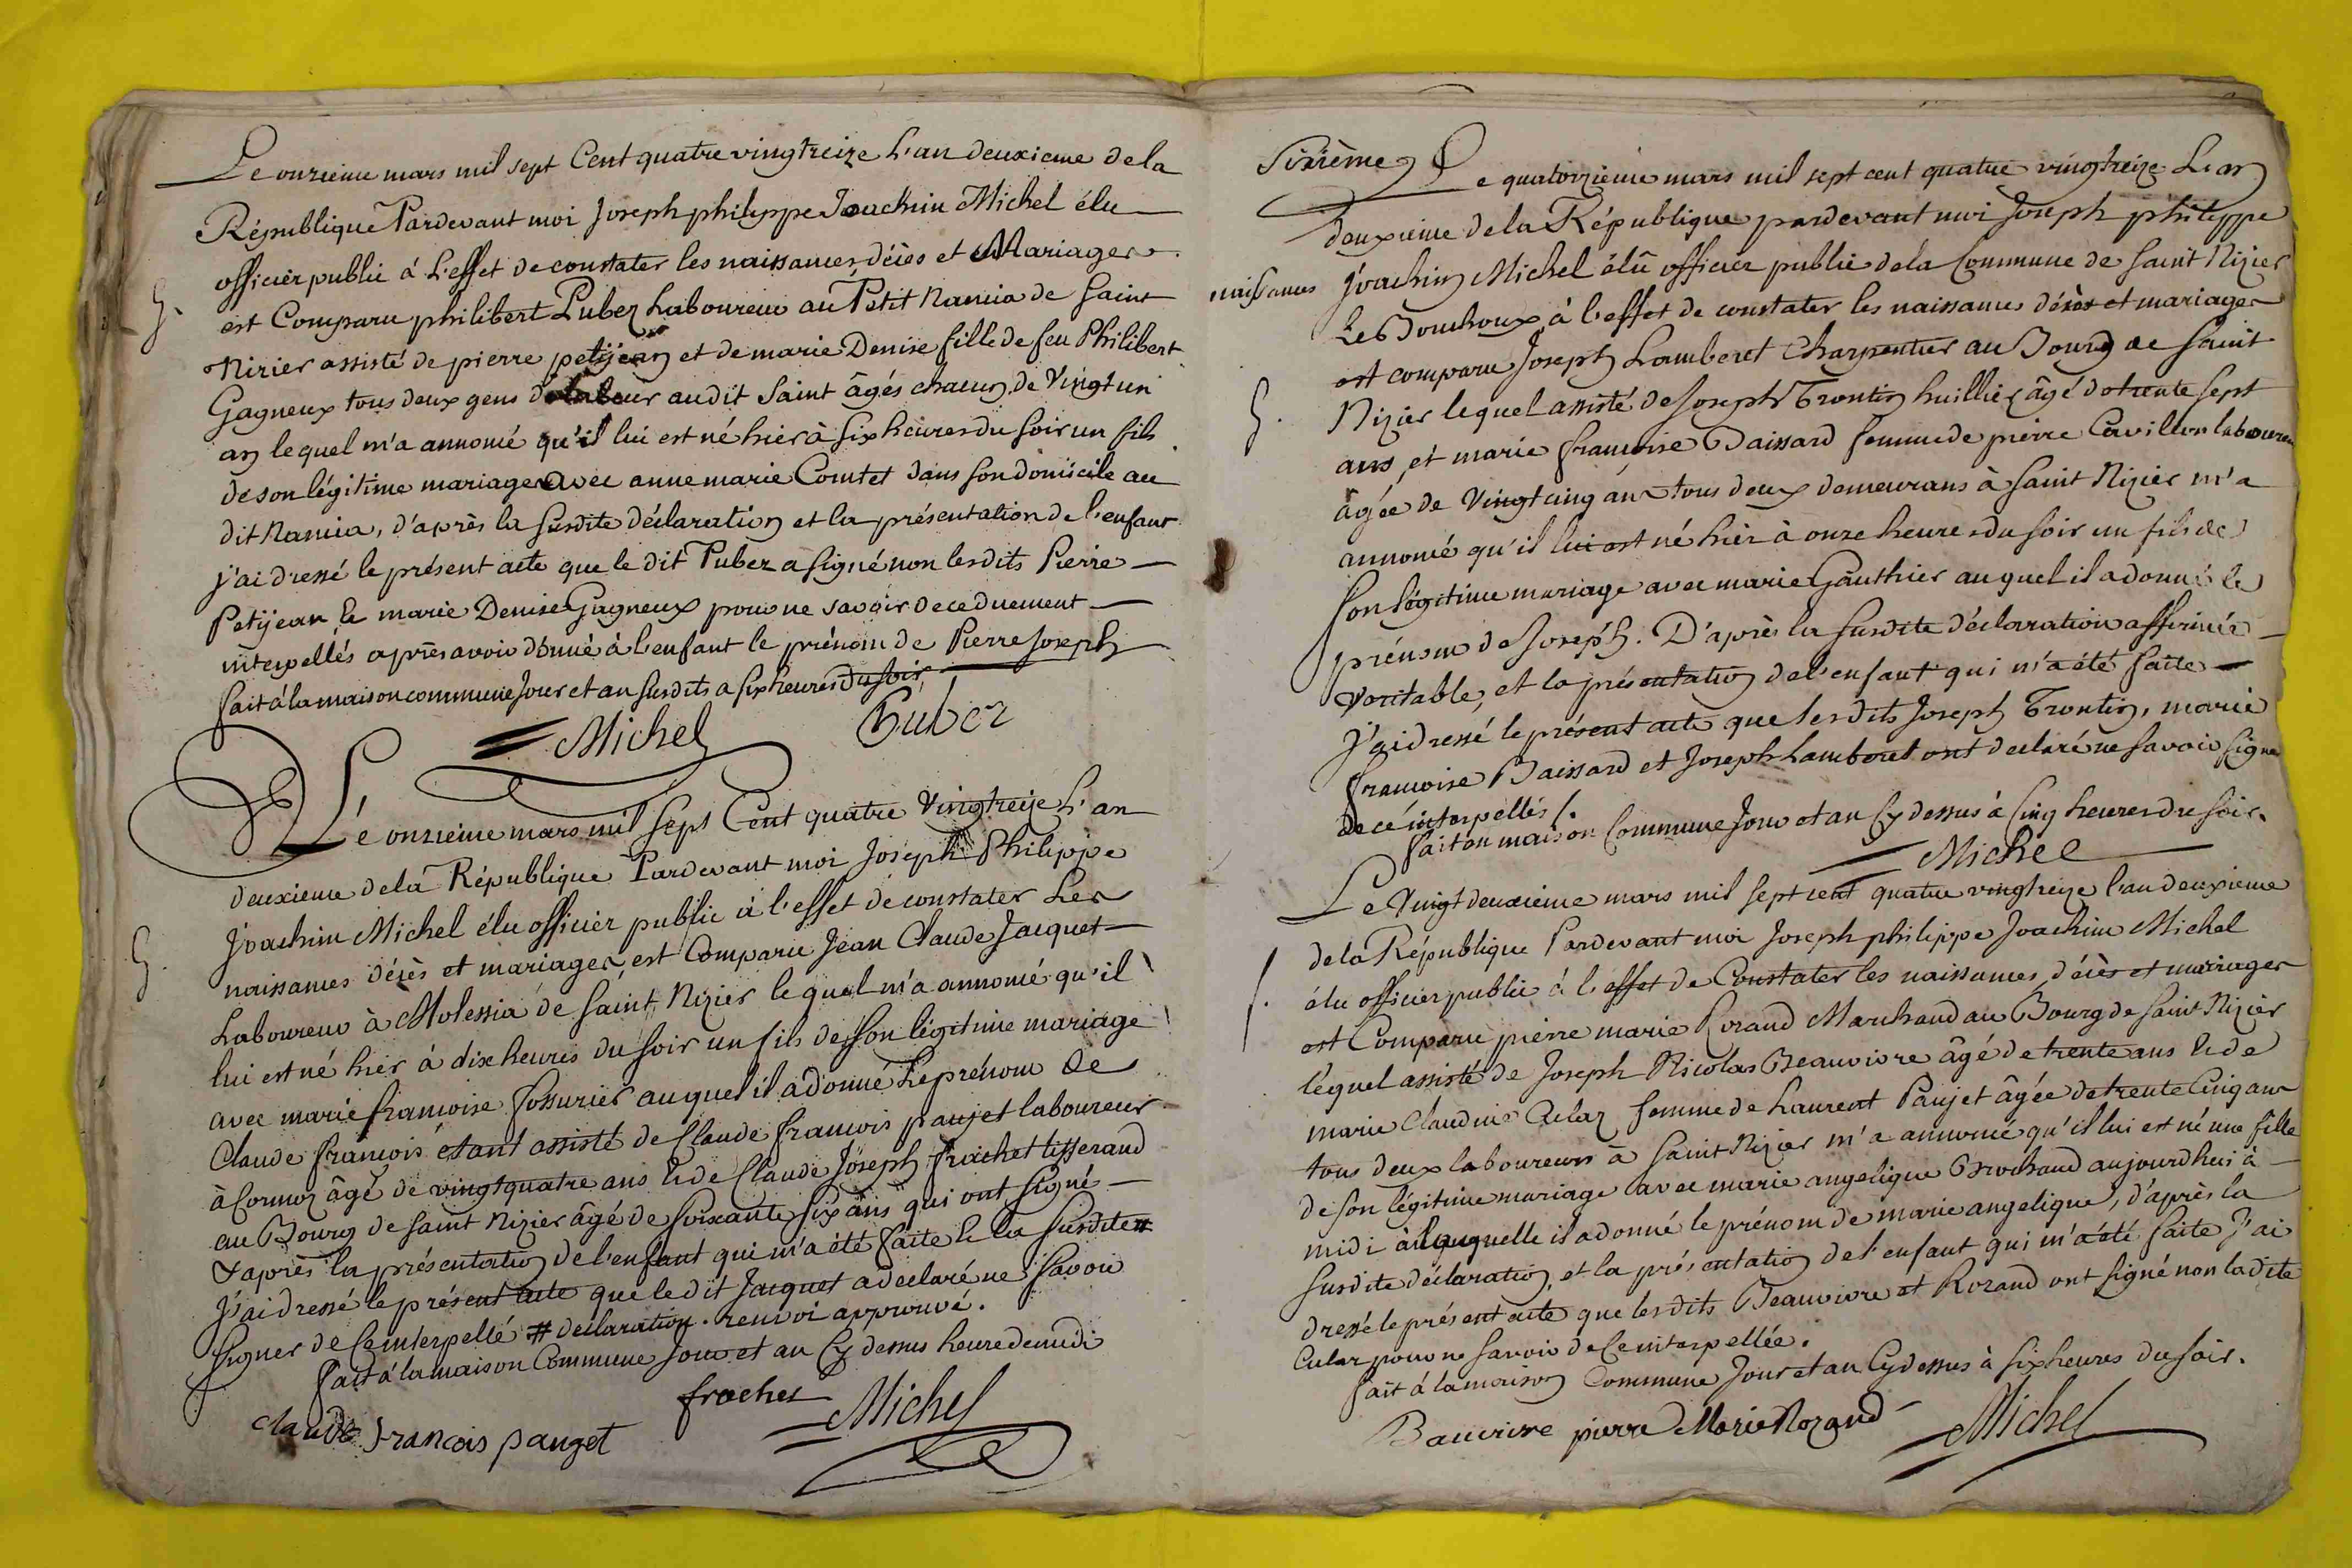 Le onzieme mars mil sept Cent quatre vingtreize L'an deuxieme de la
République Pardevant moi Joseph philippe Joachim Michel élu
officier public à L'effet de constater les naissances, décès et Mariages
G.
est Comparu philibert Pubez Laboureur au Petit Namia de Saint
Nizier assisté de pierre petijean et de marie Denise fille de feu Philibert
Gagneux tous deux gens de labeur audit Saint âgés chacun de Vingt un
an lequel m'a annoncé qu'il lui est né hier à Six heures du soir un fils
de son légitime mariage avec anne marie Comtet dans son domicile au
dit Namia, d'après la Susdite déclaration et la présentation de l'enfant
j'ai dressé le présent acte que le dit Pubez a signé non lesdits Pierre
Petijean & marie Denise Gagneux pour ne savoir de ce duement
interpellés après avoir donné à l'enfant le prénom de Pierre Joseph
fait à la maison commune Jour et an susdits a six heures du soir
Michel Pubez
Le onzieme mars mil Sept Cent quatre Vingtreize L'an
deuxieme de la République Pardevant moi Joseph Philippe
Joachim Michel élu officier public à l'effet de constater Les
G.
naissances décès et mariages, est Comparu Jean Claude Jacquet
Laboureur à Molessia de Saint Nizier lequel m'a annoncé qu'il
lui est né hier à dix heures du soir un fils de son légitime mariage
avec marie françoise fossurier auquel il a donné Le prénom de
Claude françois étant assisté de Claude françois paujet laboureur
à Cormoz âgé de vingt quatre ans & de Claude Joseph frachet tisserand
au Bourg de Saint Nizier âgé de soixante six ans qui ont signé
d'après la présentation de l'enfant qui m'a été faite & la susdite #
J'ai dressé le présent acte que le dit Jacquet a declaré ne savoir
signer de ce interpellé # declaration. renvoi approuvé.
fait à la maison Commune Jour et an Cy dessus heure de midi
frachet Michel
claude francois pauget
Sixième
Le quatorzieme mars mil sept cent quatre vingtreize L'an
deuxieme de la République pardevant moi Joseph philippe
naissances
Joachim Michel élu officier public de la Commune de Saint Nizier
Le Bouchoux à l'effet de constater les naissances décès et mariages
est comparu Joseph Lamberet Charpentier au Bourg de Saint
G.
Nizier lequel assisté de Joseph Trontin huillier âgé de trente sept
ans, et marie françoise Baissard femme de pierre Cavillon laboureur
âgée de Vingt cinq ans tous deux demeurans à Saint Nizier m'a
annoncé qu'il lui est né hier à onze heures du soir un fils de
Son légitime mariage avec marie Gauthier auquel il a donné le
prénom de Joseph. D'après la susdite déclaration affirmée
véritable, et la présentation de l'enfant qui m'a été faite
J'ai dressé le présent acte que lesdits Joseph Trontin, marie
françoise Baissard et Joseph Lamberet ont declaré ne savoir signer
de cé interpellés /.
fait en maison Commune Jour et an Cy dessus à Cinq heures du soir.
Michel
Le Vingt deuxieme mars mil sept cent quatre vingtreize l'an deuxieme
de la République Pardevant moi Joseph philippe Joachim Michel
élu officier public à l'effet de Constater les naissances, décès et mariages
est Comparu pierre marie Rozand Marchand au Bourg de Saint Nizier
lequel assisté de Joseph Nicolas Beauvivre âgé de trente ans & de
marie Claudine Culaz femme de Laurent Paujet âgée de trente Cinq ans
tous deux laboureurs à Saint Nizier m'a annoncé qu'il lui est né une fille
de son légitime mariage avec marie angelique Brochand aujourdhui à
midi à laquelle il a donné le prénom de marie angelique, d'après la
susdite déclaration, et la présentation de l'enfant qui m'a été faite J'ai
dressé le présent acte que lesdits Beauvivre et Rozand ont signé non ladite
Culaz pour ne savoir de ce interpellée.
fait à la maison Commune Jour et an Cy dessus à six heures du soir.
Bauvivre pierre Marie Rozand Michel